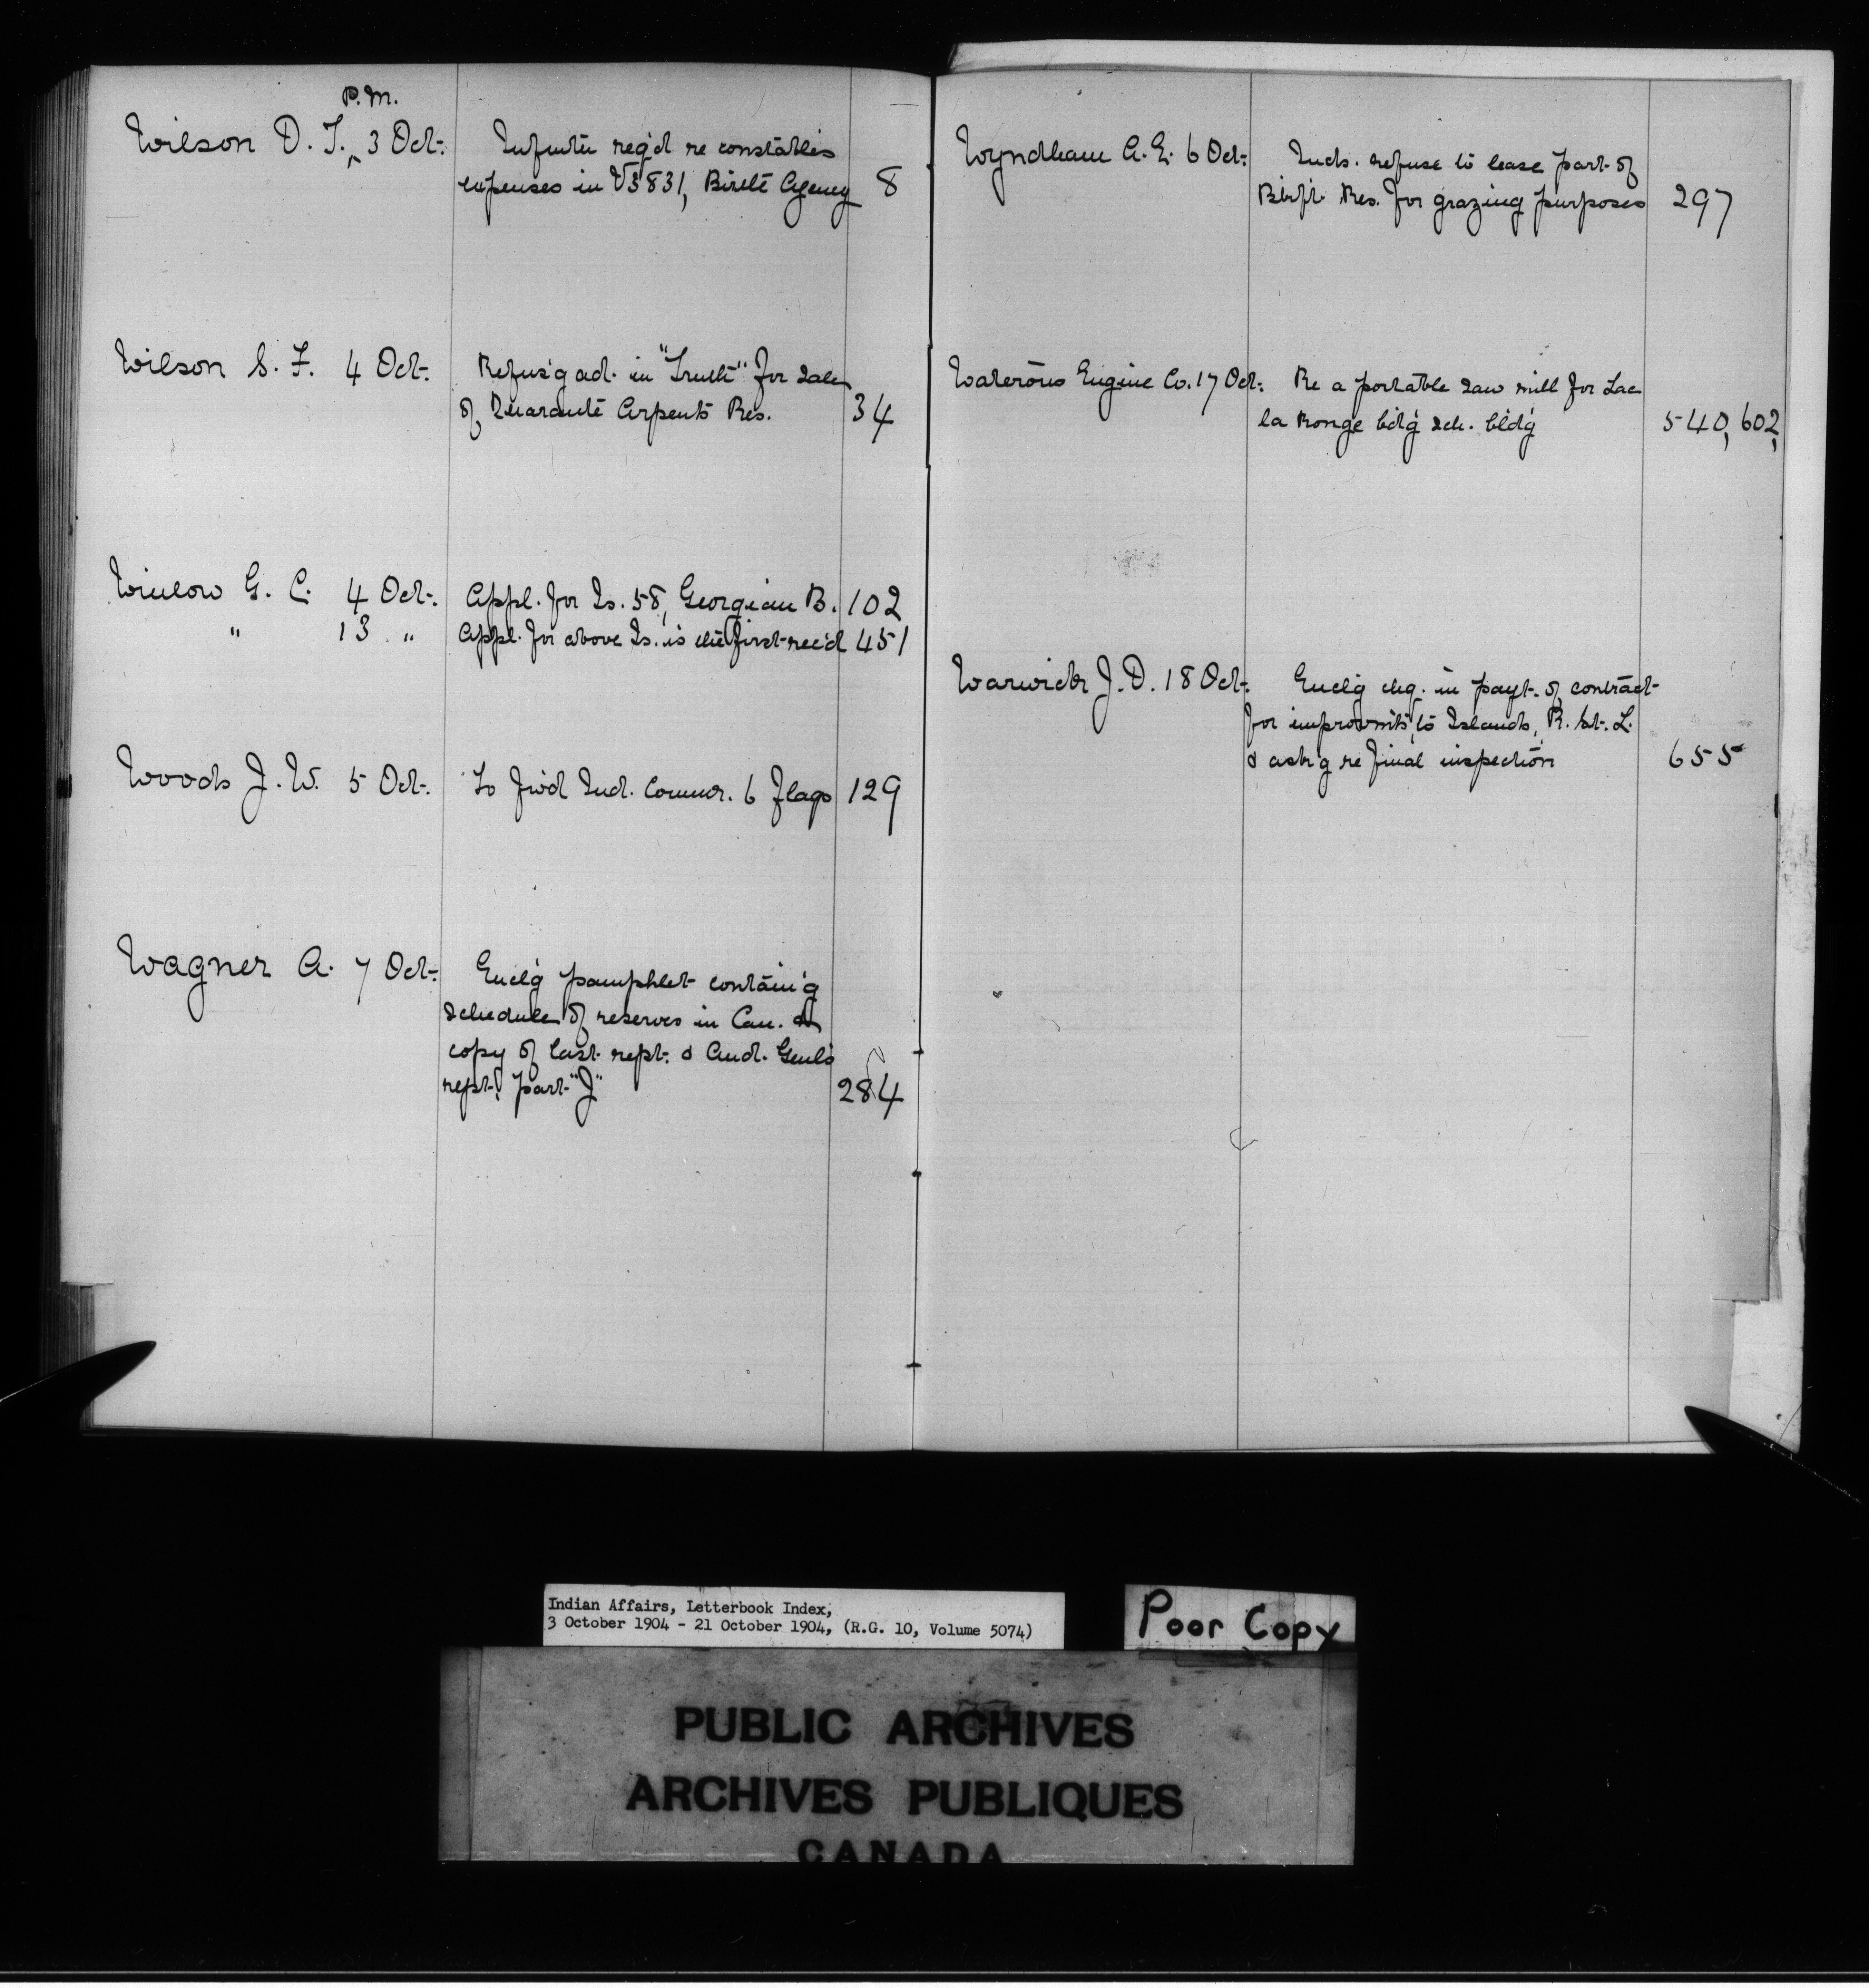 P.M.
Wilson D. T., 3 Oct.
Informtn req'd re constable's
expenses in V5831, Birtle Agency 8
Wilson S. F. 4 Oct.
Refus'g ad. in "Truth" for sale
of Quarante Arpents Res. 34
Winlow G. C. 4 Oct. Appl. for Is. 58, Georgian B. 102
" 13 " Appl. for above Is. is the first rec'd 451
Woods J. W. 5 Oct. To fw'd Ind. Commr. 6 flags 129
Wagner A. 7 Oct.
Encl'g pamphlet contain'g
schedule of reserves in Can. &
copy of last rept. & Aud. Genl's
rept. part "J" 284
Wyndham A. E. 6 Oct.
Inds. refuse to lease part of
Blkft. Res. for grazing purposes 297
Waterous Engine Co. 17 Oct. Re a portable saw mill for Lac
la Ronge bd'g sch. bld'g 540, 602,
Warwick J. D. 18 Oct.
Encl'g chq. in payt. of contract
for improvmts, to Islands, R. St. L.
& ask'g re final inspection 655
Indian Affairs, Letterbook Index,
3 October 1904 - 21 October 1904, (R.G. 10, Volume 5074)
Poor Copy
PUBLIC ARCHIVES
ARCHIVES PUBLIQUES
CANADA